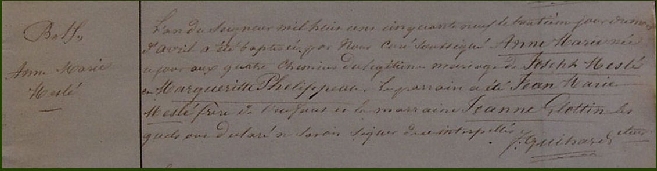 Bath
Anne Marie
Meslé
L'an du Seigneur mil huit cent cinquante neuf le huitième jour du mois
d'avril a été baptisée par Nous Curé soussigné Anne Marie née
ce jour aux quatre Chemins du légitime mariage de Joseph Meslé
et Marguerite Phelippeau. Le parrain a été Jean Marie
Meslé frère de l'enfant et la marraine Jeanne Glottin les
quels ont déclaré ne savoir signer de ce interpellés
J. Guihard